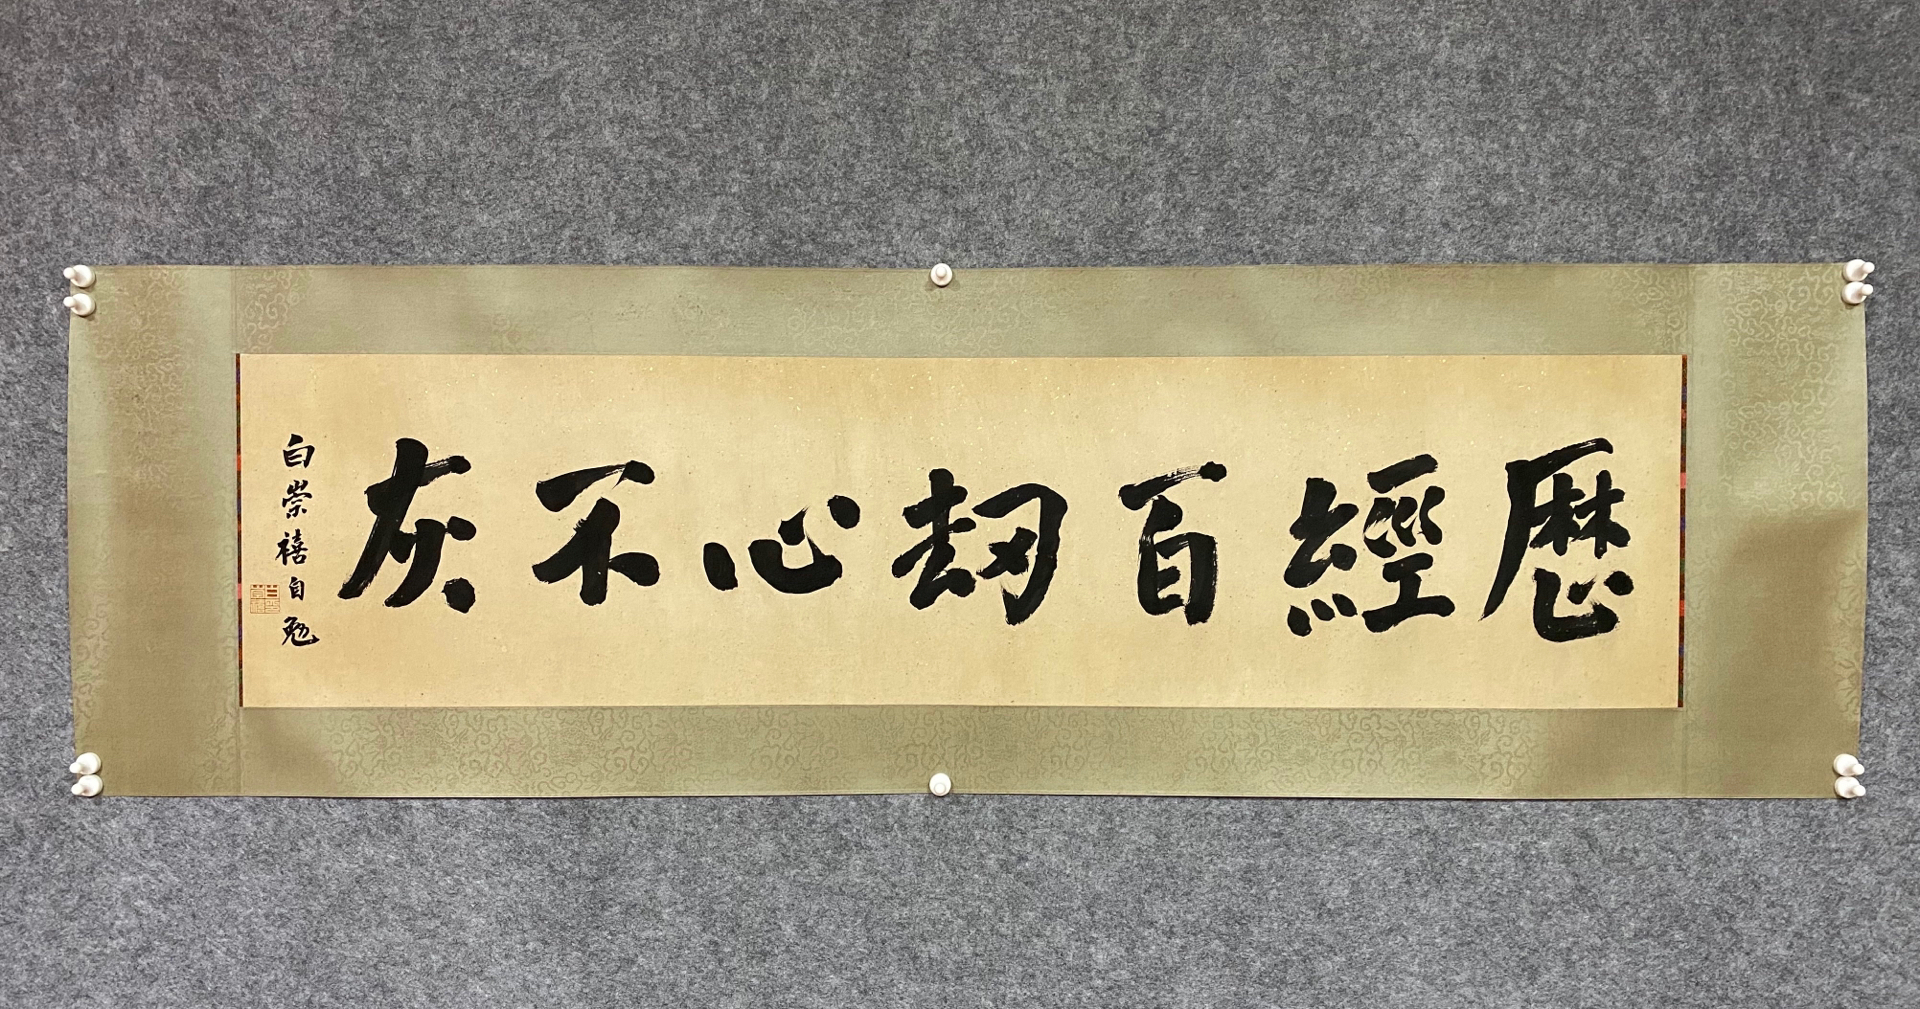 歴經百刼心不灰
白崇禧自勉